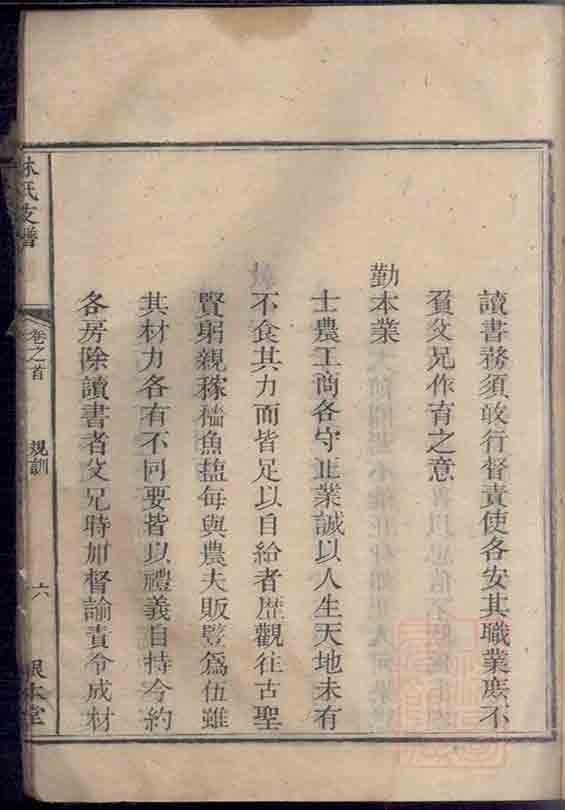 讀書務須敢行督責使各安其職業庶不
負父兄作育之意
勤本業
士農工商各守正業誠以人生天地未有
不食其力而皆足以自給者歷觀往古聖
賢躬親稼穡魚鹽每與農夫販豎爲伍雖
其材力各有不同要皆以禮義自持今約
各房除讀書者父兄時加督諭責令成材
林氏支譜
卷之首
規訓
六
本堂